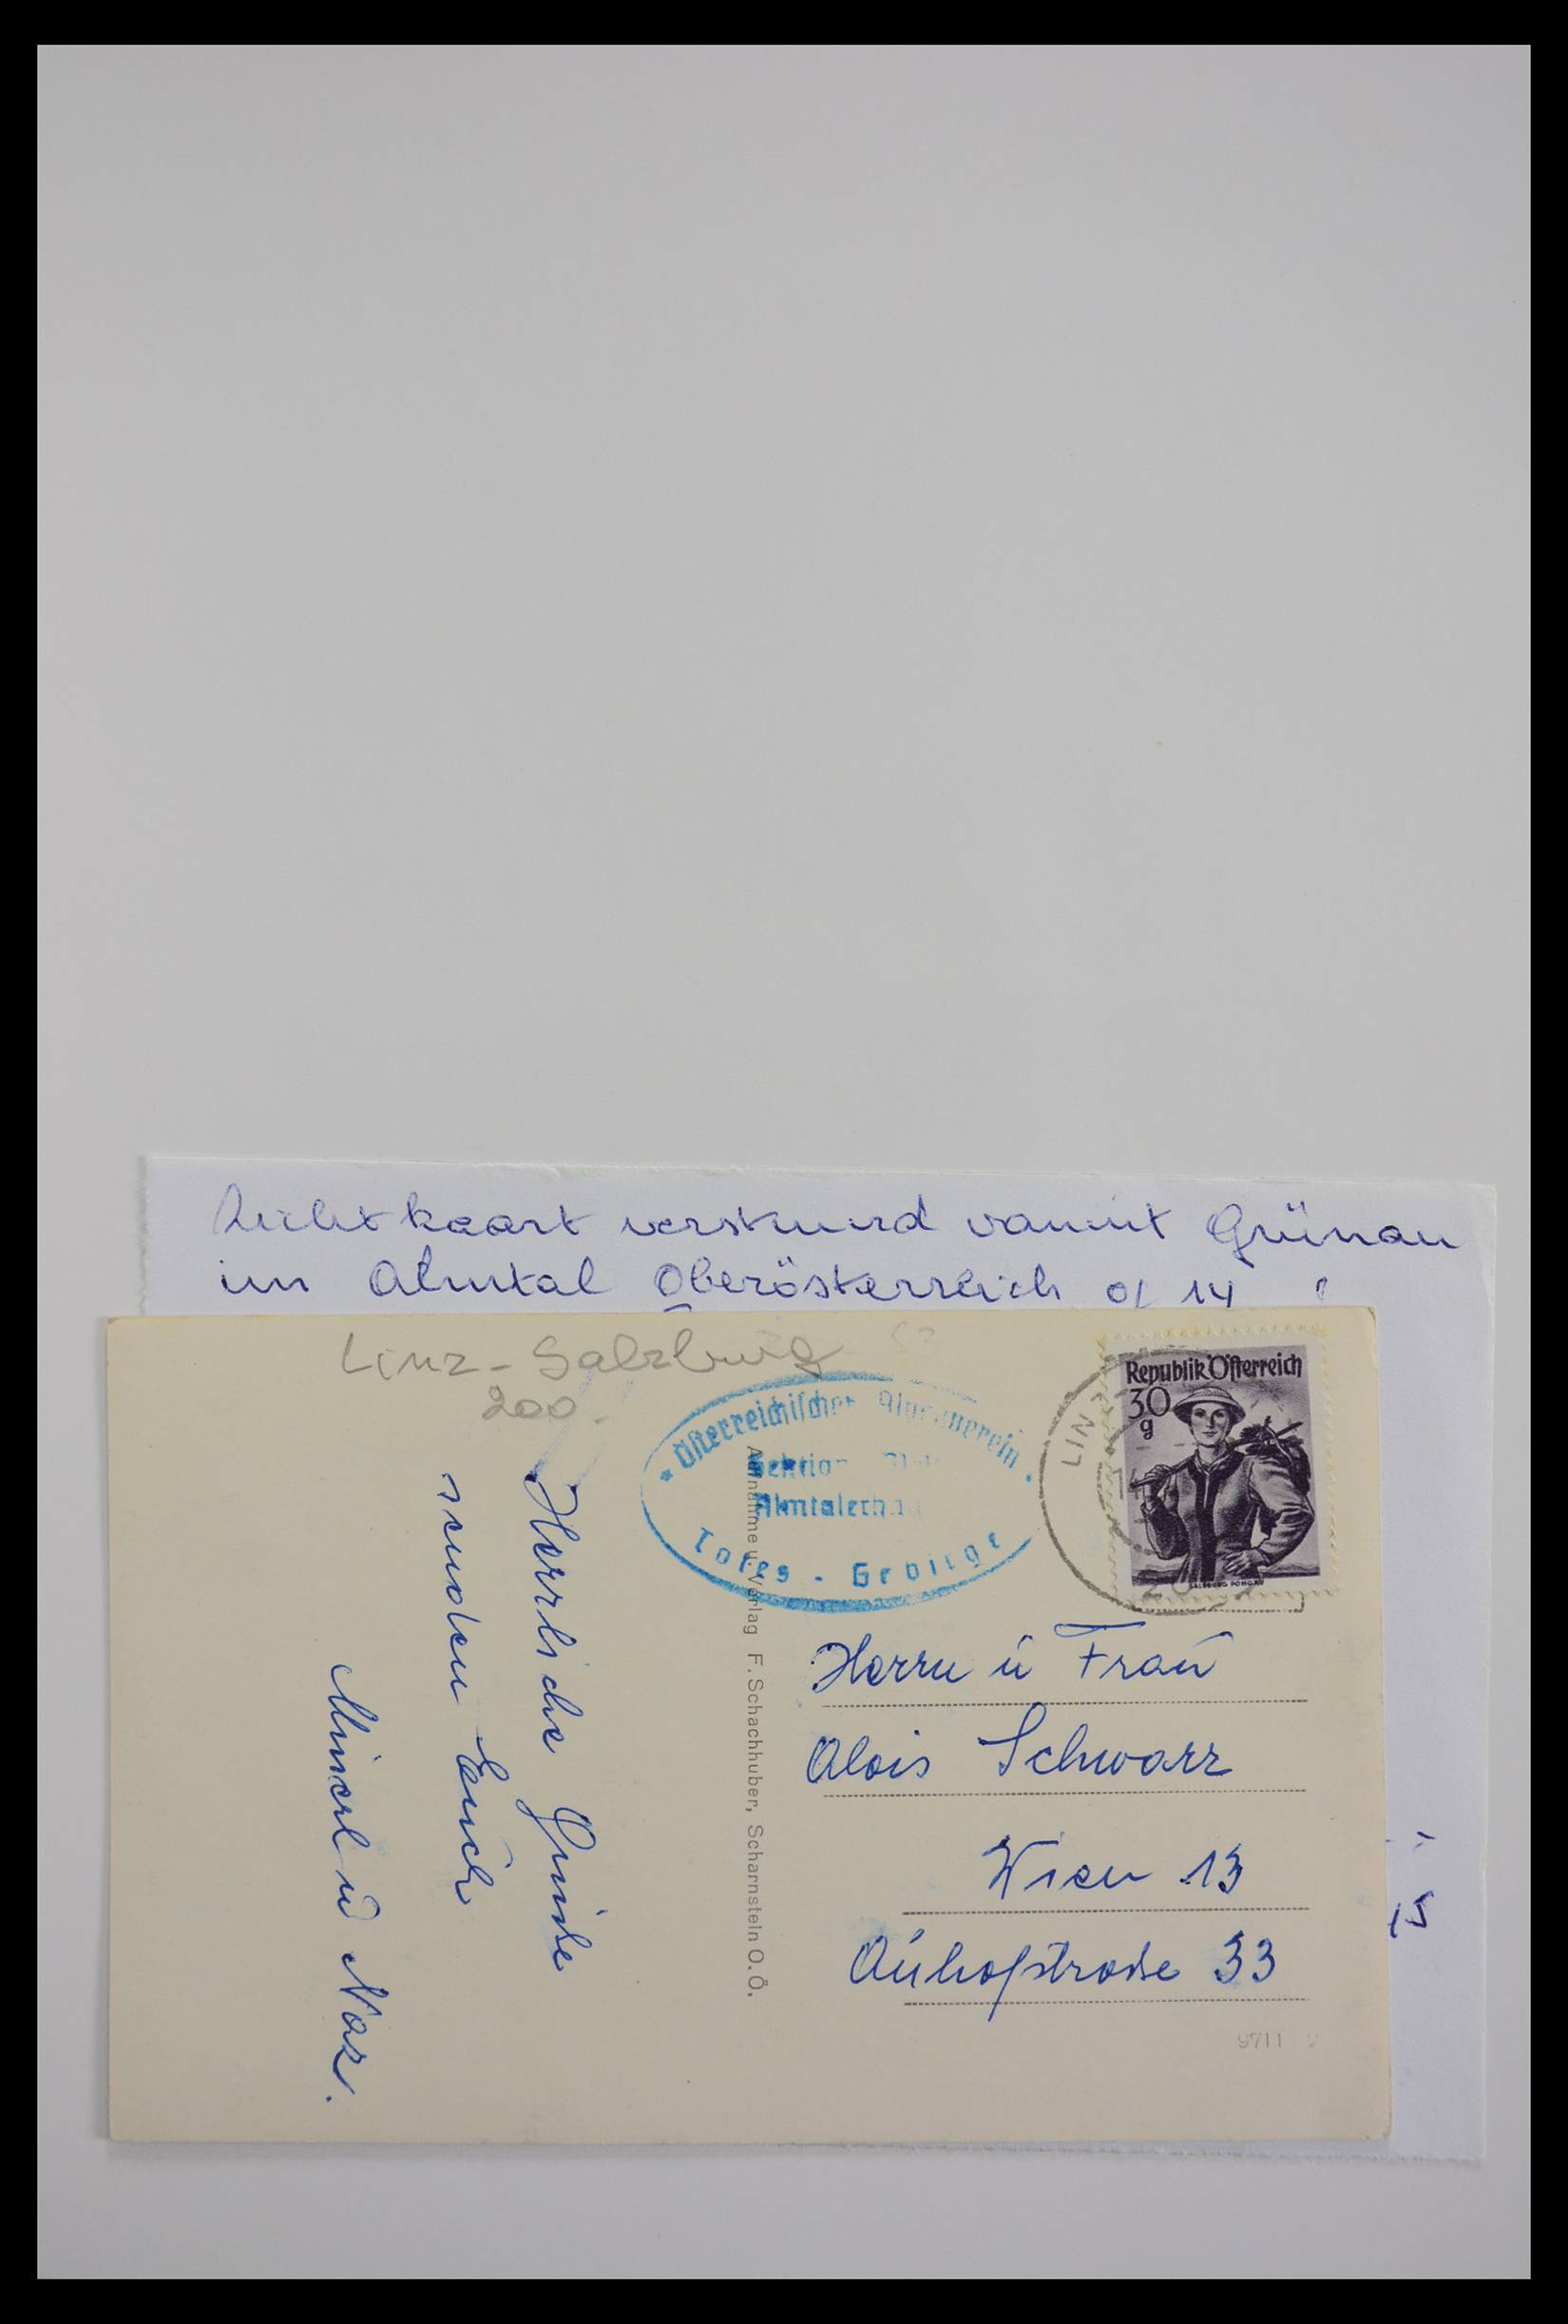 kaart verstuurd vanuit Grünau
im Almtal Oberösterreich d/ 14
Linz - Salzburg
200.
Österreichischer Alpenverein
Sektion
Totes - Gebirge
LINZ
Republik Österreich
30
g
SALZBURG PONGAU
Herrliche Grüße
senden Euch
Minerl u Naz.
Aufnahme u. Verlag F. Schachhuber, Scharnstein O.Ö.
Herrn u Frau
Alois Schwarz
Wien 13
Auhofstraße 33
9711
15